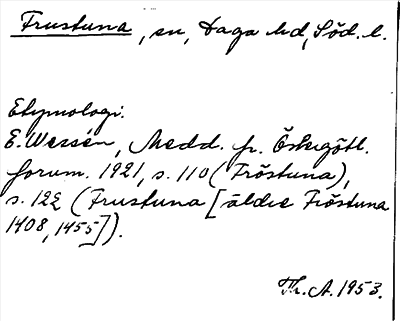 Frustuna, sn, Daga hd, Söd. l.
Etymologi:
E. Wessén, Medd. fr. Östergötl.
fornm. 1921, s. 110 (Fröstuna),
s. 122 (Frustuna [äldre Fröstuna
1408, 1455]).
Th. A. 1953.